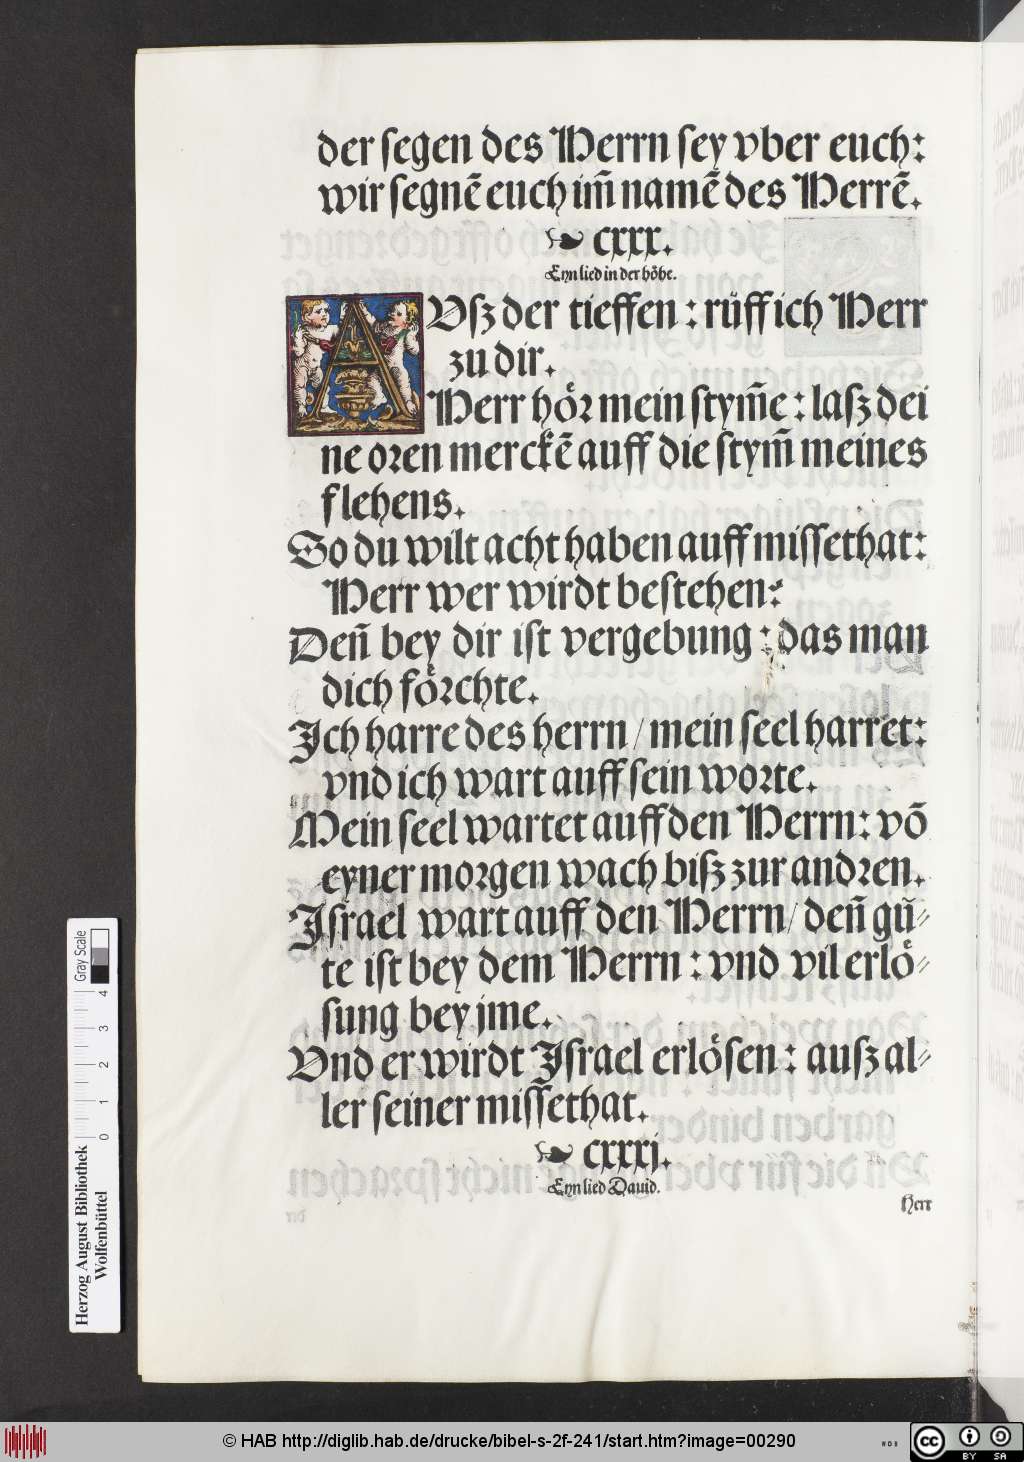 der segen des Herrn sey vber euch:
wir segnē euch im̄ namē des Herrē.
cxxx.
Eyn lied in der höhe.
AVſz der tieffen : růff ich Herr
zu dir.
Herr hör mein ſtym̄e : laſz dei
ne oren merckē auff die ſtym̄ meines
flehens.
So du wilt acht haben auff miſſethat:
Herr wer wirdt beſtehen:
Den̄ bey dir iſt vergebung : das man
dich förchte.
Ich harre des herrn / mein ſeel harret:
vnd ich wart auff ſein worte.
Mein ſeel wartet auff den Herrn: vō
eyner morgen wach biſz zur andren.
Iſrael wart auff den Herrn/ den̄ gů⸗
te iſt bey dem Herrn : vnd vil erlö⸗
sung bey jme.
Vnd er wirdt Iſrael erlöſen : auſz al⸗
ler ſeiner miſſethat.
cxxxj.
Eyn lied Dauid.
Herr
Herzog August Bibliothek
Wolfenbüttel
0 1 2 3 4
Gray Scale
© HAB http://diglib.hab.de/drucke/bibel-s-2f-241/start.htm?image=00290
WDB
cc BY SA